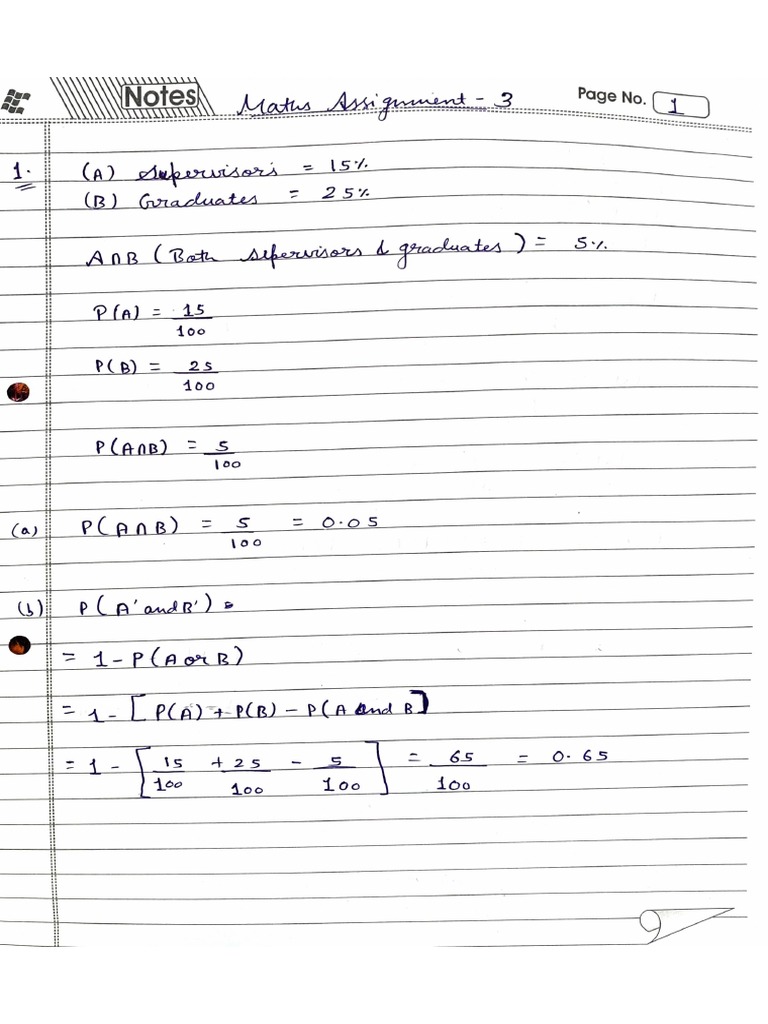 Notes Maths Assignment - 3 Page No. 1
1. (A) Supervisors = 15%
(B) Graduates = 25%
A∩B (Both supervisors & graduates) = 5%
P(A) = 15/100
P(B) = 25/100
P(A∩B) = 5/100
(a) P(A∩B) = 5/100 = 0.05
(b) P(A' and B') =
= 1 - P(A or B)
= 1 - [P(A) + P(B) - P(A and B)]
= 1 - [15/100 + 25/100 - 5/100] = 65/100 = 0.65